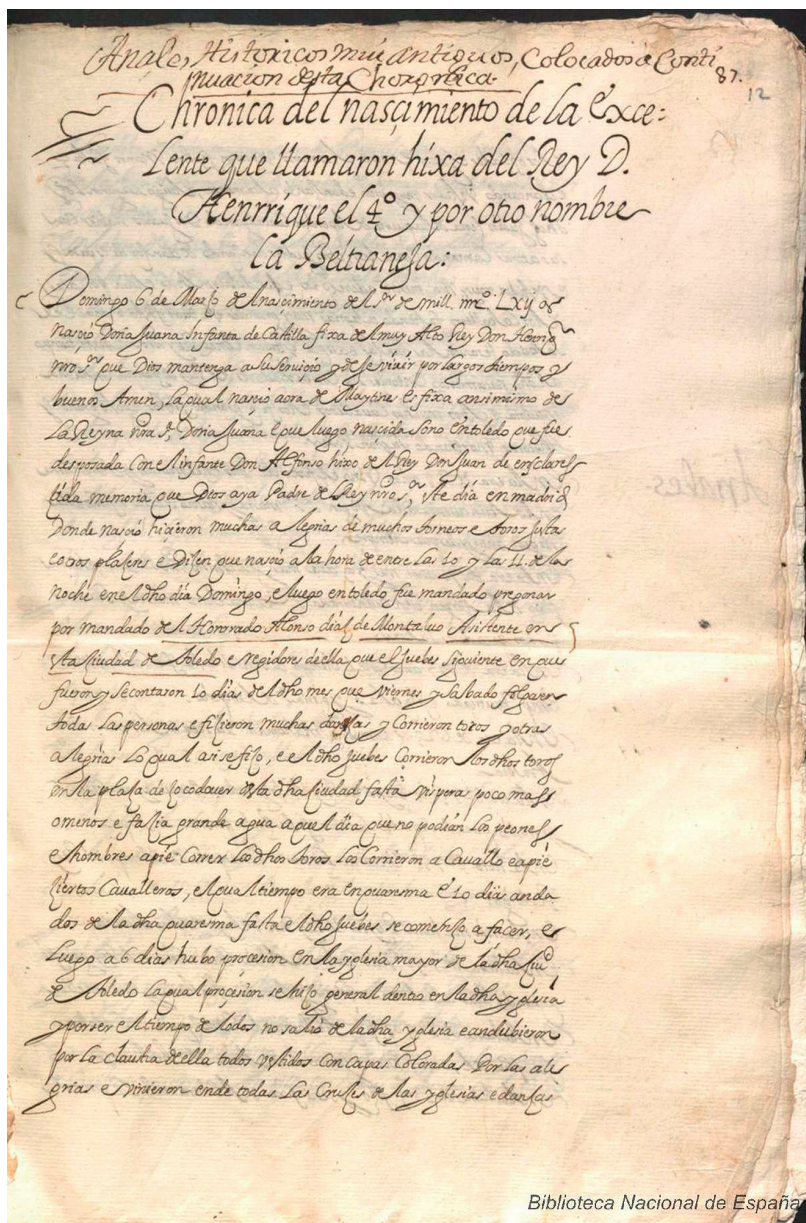 Anales Historicos mui antiguos, Colocados à Conti
nuacion desta Choronica.
87.
12
Chronica del nasçimiento de la exce=
lente que llamaron hixa del Rey D.
Henrrique el 4º y por otro nombre
la Beltranesa:
Domingo 6 de Março del nasçimiento del Sr de mill. mº. Lxij aº
nascio Doña Juana Infanta de Castilla fixa del muy Alto Rey Don Henrriq
nro Sr que Dios mantenga a su serviçio y dexe vivir por largos tiempos y
buenos Amen, la qual nasçio a ora de Maytines es fixa ansimismo de
la Reyna nra Sª Doña Juana e que luego nasçida sono en toledo que fue
desposada con el infante Don Alfonso hixo del Rey Don Juan de esclares
çida memoria que Dios aya Padre del Rey nro Sr, este dia en madrid
Donde nasçio hiçieron muchas alegrias de muchos torneos e toros justas
e otros plaçeres e diçen que nasçio a la hora de entre las 10 y las 11. de la
noche en el dho dia Domingo, e luego en toledo fue mandado pregonar
por mandado del Honrrado Alonso diaz de Montaluo Asistente en
esta çiudad de Toledo e regidores de ella que el juebes siguiente en que
fueron y se contaron 10 dias del dho mes que viernes y sabado folgasen
todas las personas e fiçieron muchas danças y corrieron toros y otras
alegrias lo qual asi se fiço, e el dho juebes corrieron los dhos toros
en la plaça de çocodouer desta dha çiudad fasta visperas poco mas
o menos e façia grande agua aquel dia que no podian los peones
e hombres apie correr los dhos toros los corrieron a cavallo e apie
çiertos cavalleros, el qual tiempo era en quaresma e 10 dias anda
dos de la dha quaresma fasta el dho juebes se començo a facer, e
luego a 6 dias hubo proçesion en la yglesia mayor de la dha çiud
de Toledo la qual proçesion se hiço general dentro en la dha yglesia
y por ser el tiempo de lodos no salio de la dha yglesia e andubieron
por la claustra de ella todos vestidos con capas coloradas por las ale
grias e vinieron ende todas las cruçes de las yglesias e danças
Biblioteca Nacional de España